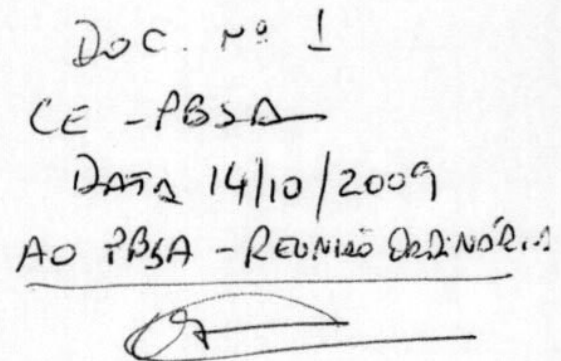 DOC. Nº 1
CE - PBSA
DATA 14/10/2009
AO PBSA - REUNIÃO ORDINÁRIA